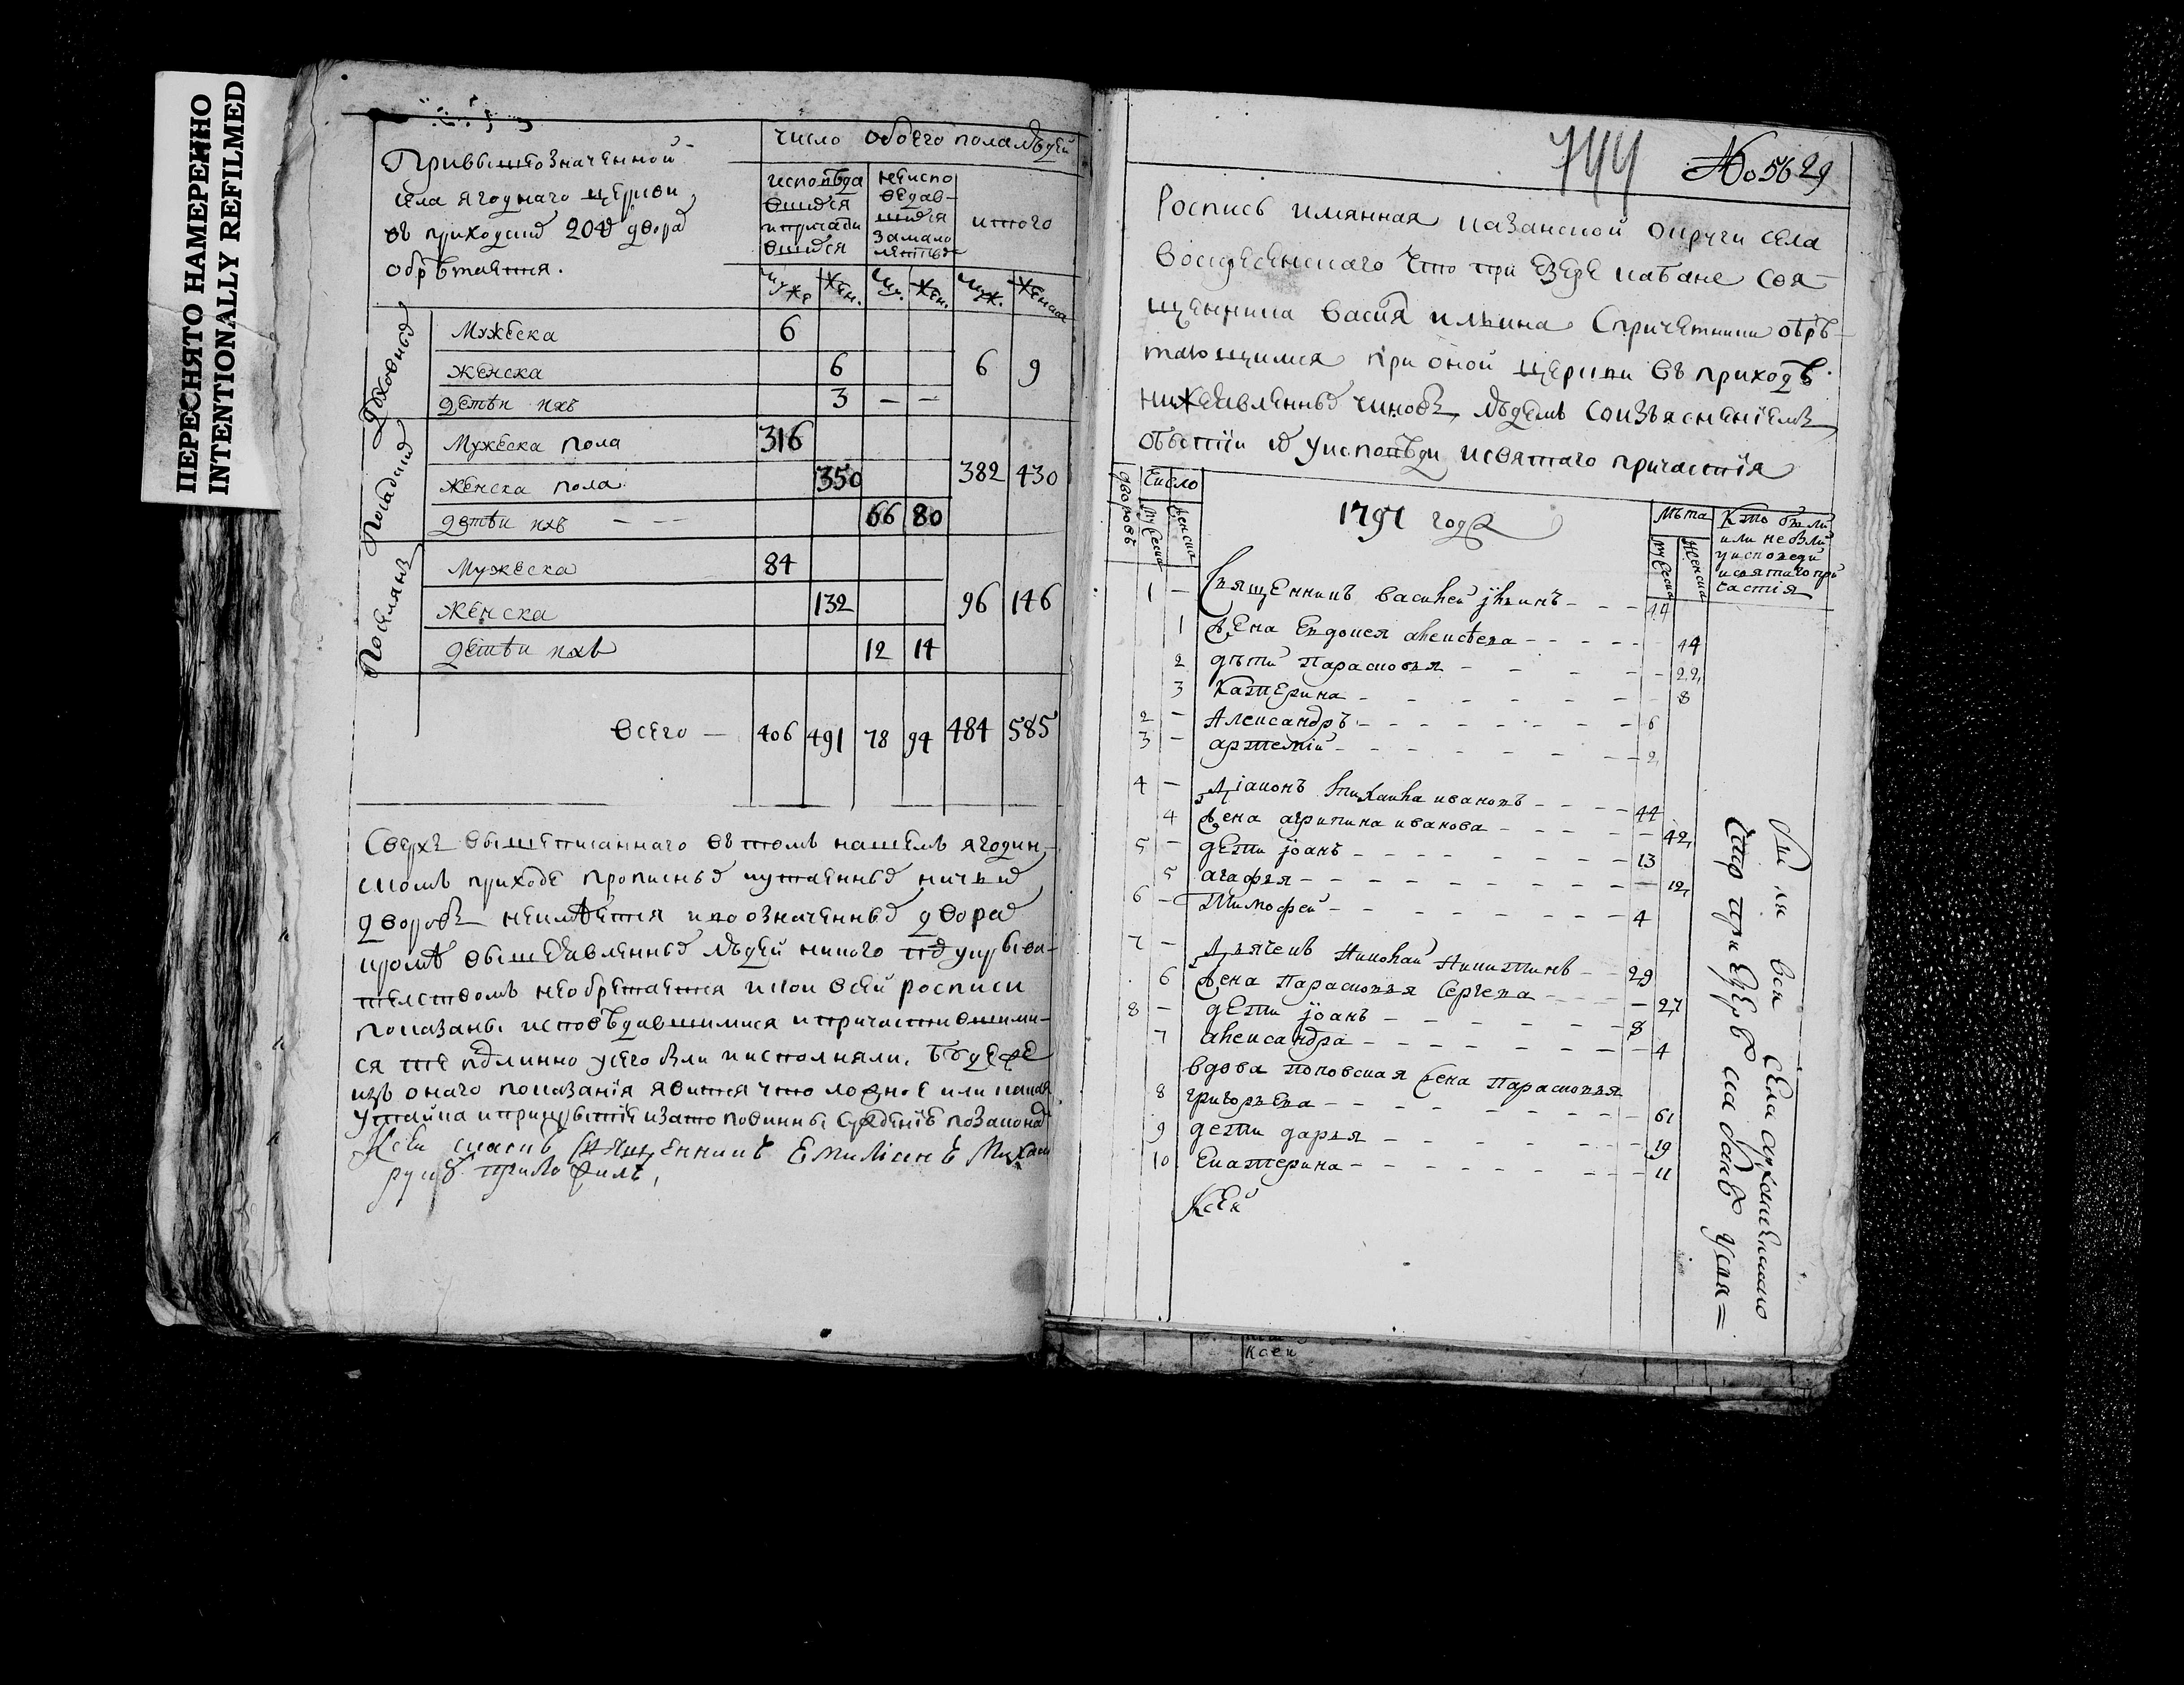 ПЕРЕСНЯТО НАМЕРЕННО
INTENTIONALLY REFILMED
Привышеозначенной
села ягоднаго церкви
въ приходских 204 двора
обрѣтается.
число обоего пола людей
исповѣда
вшихся
ипричасти
вшихся
неиспо
ведав-
шихся
замало
летьс
итого
муже
жен.
му.
жен.
муж.
женска
духовных
Мужеска 6
женска 6 6 9
дети ихъ 3 — —
посадских
Мужеска пола 316
женска пола 350 382 430
дети ихъ — — — 66 80
поселянъ
Мужеска 84
женска 132 96 146
дети ихъ 12 14
всего — 406 491 78 94 484 585
Сверхъ вышеписаннаго въ томъ нашемъ ягодин-
скомъ приходе прописных иутаенных ничьих
дворовъ неимѣется и во означенных дворах
кромѣ вышеявленных людей никого
необретается и кои всей росписи
показаны исповѣдавшимися и причастившими-
ся те
изъ онаго показанія явится что ложное или какая
утайка
священникъ Емиліанъ
руку приложилъ,
744
№ 56 29
Роспись имянная казанской округи села
воскресенскаго что при езере кабане свя-
щенника василя ильина спричетники обрѣ-
тающимися при оной церкви въ приходѣ
нижеявленных чиновъ людемъ соизъясненіемъ
о бытіи их уисповѣди исвятаго причастія
дворовъ
Число
мужеска
женска
1791 года
лѣта
мужеска
женска
Кто были
или небыли
уисповеди
исвятагопри
частія
1 — Священникъ василей ильинъ — — — 44
1 жена евдокея алексѣева — — — — 44
2 дѣти парасковья — — — — 22
3 катерина — — — — — 8
2 — Александръ — — — — — 6
3 — артемій — — — — — 2
4 — діаконъ михаила ивановъ — — — 44
4 жена агрипина иванова — — — — 42
5 — дети іоанъ — — — — — 13
5 агафья — — — — — 12
6 — тимофей — — — — — 4
7 — дьячекъ николай никитинъ — — 29
6 жена парасковья сергева — — — — 27
8 — дети іоанъ — — — — — 8
7 александра — — — — — 4
вдова поповская жена парасковья
8 григорьева — — — — — 61
9 дети дарья — — — — — 19
10 екатерина — — — — — 11
Ксей
были вси села